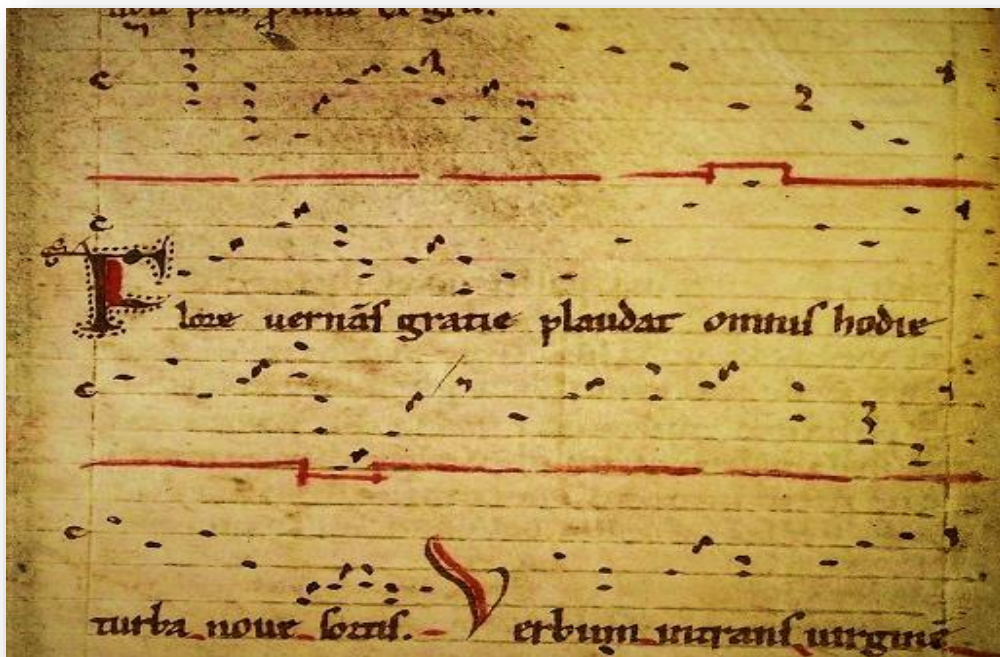 Flore uernãs gratie plaudat omnis hodie
turba noue sortis. Verbum intrans uirginē